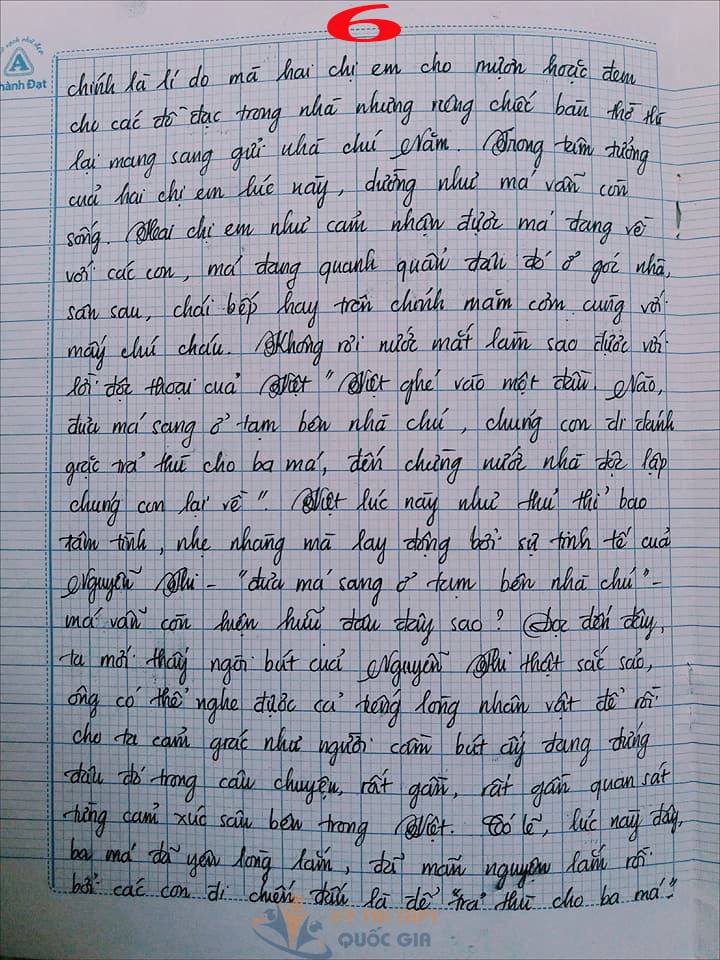 6
A
Thành Đạt
chính là lí do mà hai chị em cho mượn hoặc đem
cho các đồ đạc trong nhà nhưng riêng chiếc bàn thờ thì
lại mang sang gửi nhà chú Năm. Trong tâm tưởng
của hai chị em lúc này, dường như má vẫn còn
sống. Hai chị em như cảm nhận được má đang về
với các con, má đang quanh quẩn đâu đó ở góc nhà,
sân sau, chái bếp hay trên chính mâm cơm cúng với
mấy chú cháu. Không rơi nước mắt làm sao được với
lời độc thoại của Việt "Việt ghé vào một đầu. Nào,
đưa má sang ở tạm bên nhà chú, chúng con đi đánh
giặc trả thù cho ba má, đến chừng nước nhà độc lập
chúng con lại về". Việt lúc này như thủ thỉ bao
tâm tình, nhẹ nhàng mà lay động bởi sự tinh tế của
Nguyễn Thi - "đưa má sang ở tạm bên nhà chú" -
má vẫn còn hiện hữu đâu đây sao? Đọc đến đây,
ta mới thấy ngòi bút của Nguyễn Thi thật sắc sảo,
ông có thể nghe được cả tiếng lòng nhân vật để rồi
cho ta cảm giác như người cầm bút ấy đang đứng
đâu đó trong câu chuyện, rất gần, rất gần quan sát
từng cảm xúc sâu bên trong Việt. Có lẽ, lúc này đây,
ba má đã yên lòng lắm, đã mãn nguyện lắm rồi
bởi các con đi chiến đấu là để "trả thù cho ba má."
KỲ THI THPT
QUỐC GIA